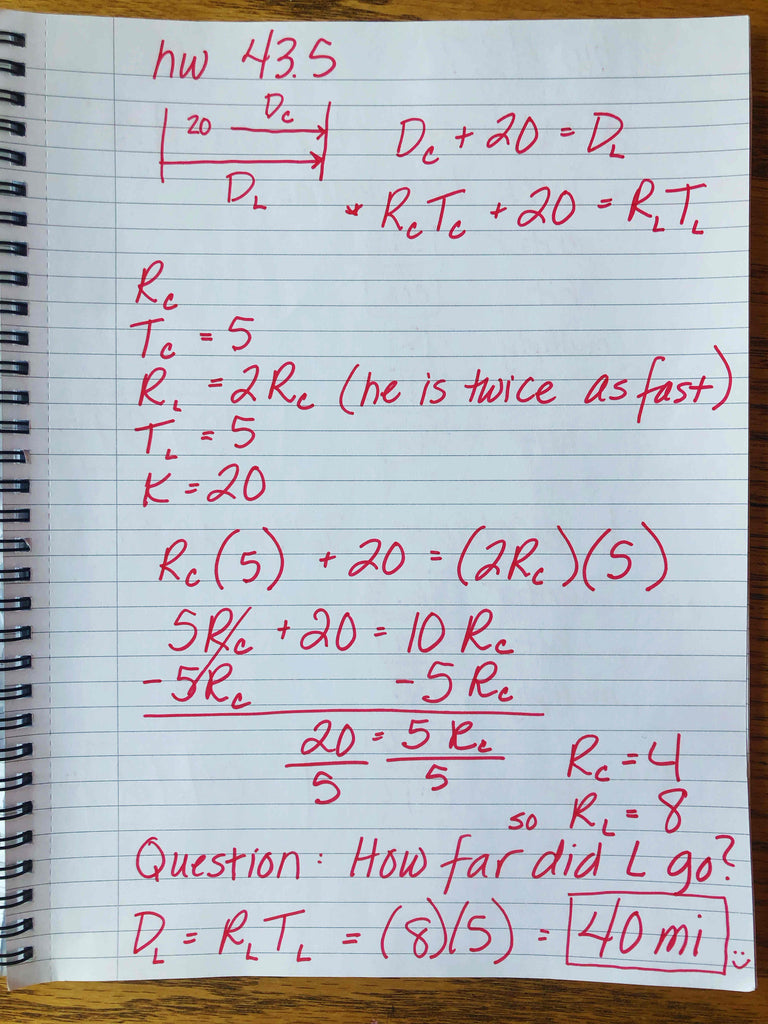 hw 43.5
20 D_C
D_L
D_C + 20 = D_L
* R_C T_C + 20 = R_L T_L
R_C
T_C = 5
R_L = 2R_C (he is twice as fast)
T_L = 5
K = 20
R_C (5) + 20 = (2R_C)(5)
5R_C + 20 = 10 R_C
-5R_C -5 R_C
20 = 5 R_C
5 5
R_C = 4
so R_L = 8
Question: How far did L go?
D_L = R_L T_L = (8)(5) = 40 mi :)